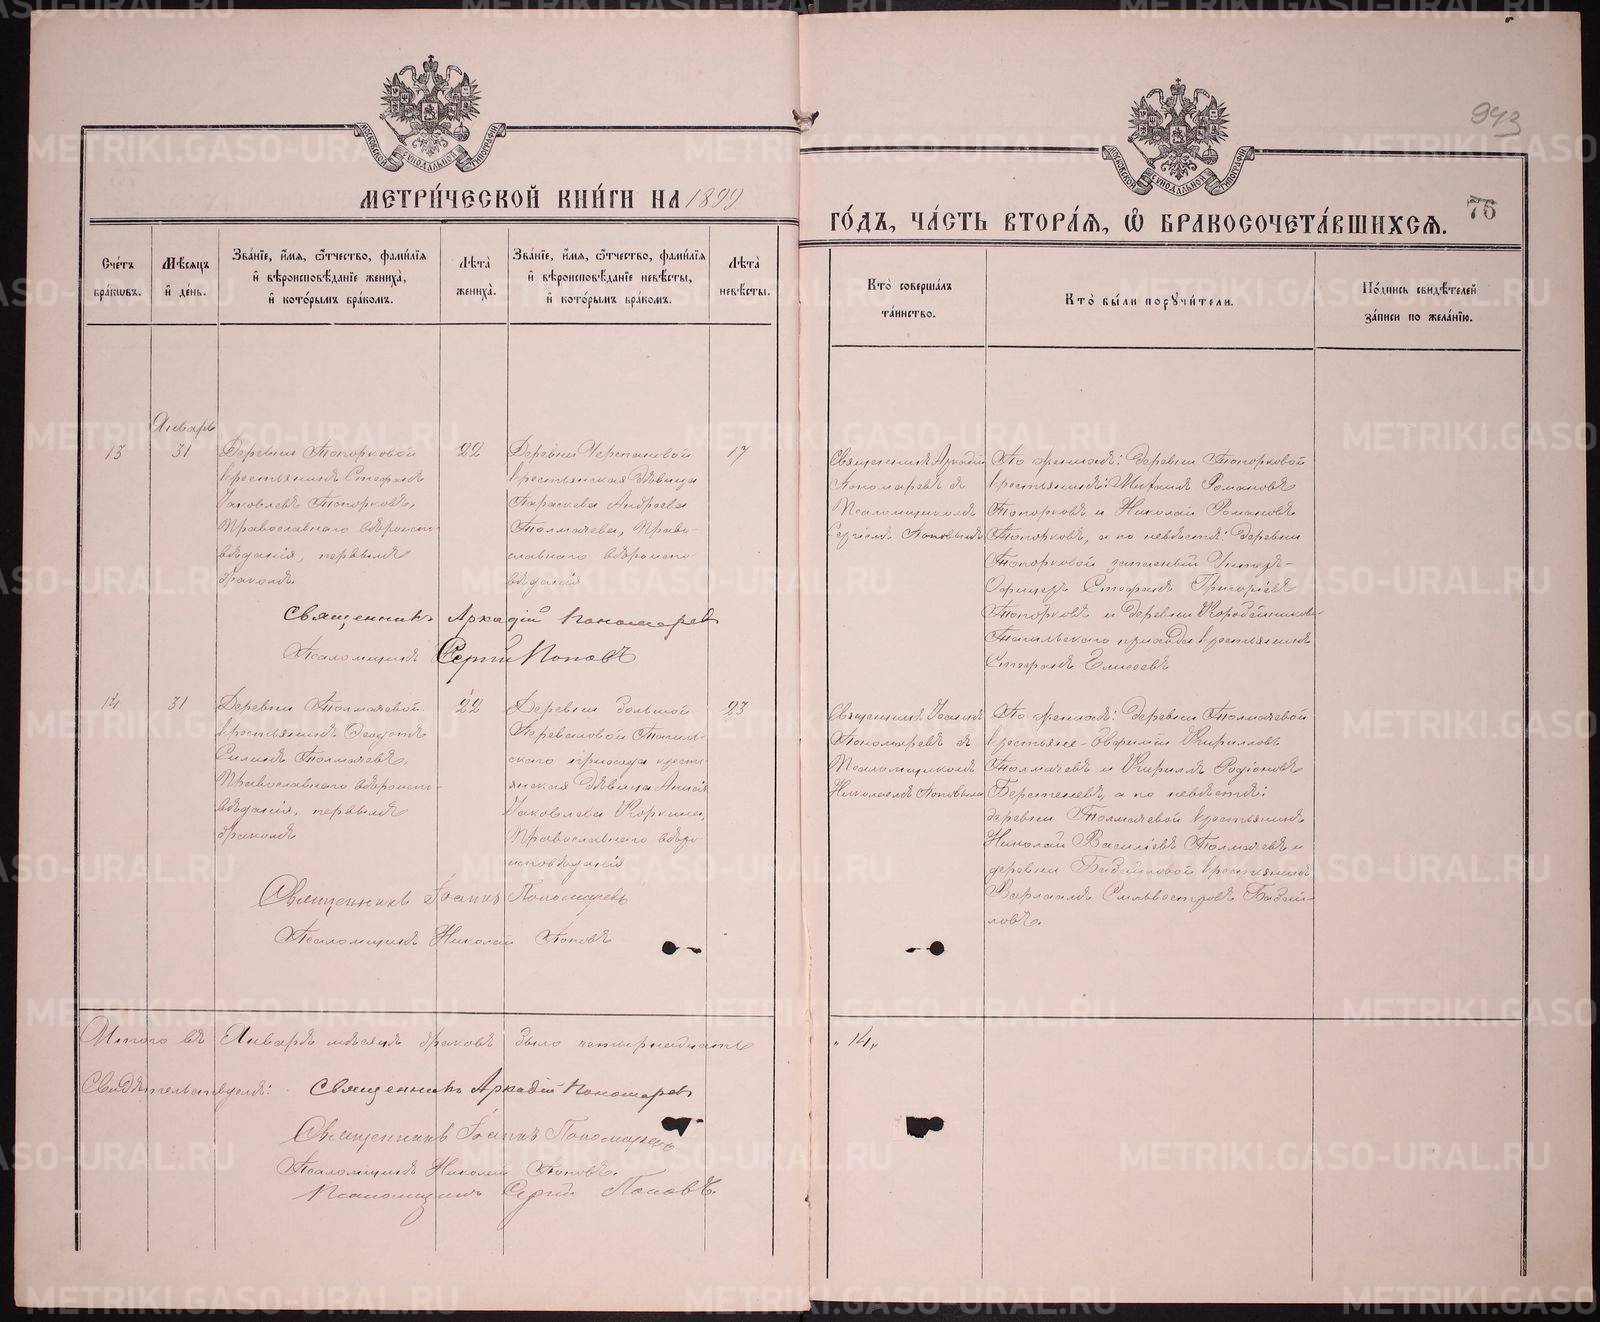 943
76
МОСКОВСКОЙ СѴНОДАЛЬНОЙ ТИПОГРАФІИ
МОСКОВСКОЙ СѴНОДАЛЬНОЙ ТИПОГРАФІИ
МЕТРИ́ЧЕСКОЙ КНИ́ГИ НА 1899
ГО́ДЪ, ЧА́СТЬ ВТОРА́Я, Ѽ БРАКОСОЧЕТА́ВШИХСЯ.
Сче́тъ бра́кѡвъ.
Мѣ́сяцъ и҆ де́нь.
Зва́нїе, и҆́мя, ѻ҆́тчество, фами́лїя
и҆ вѣроисповѣ́данїе жениха̀,
и҆ кото́рымъ бра́комъ.
Лѣ́та̀ жениха̀.
Зва́нїе, и҆́мя, ѻ҆́тчество, фами́лїя
и҆ вѣроисповѣ́данїе невѣ́сты,
и҆ кото́рымъ бра́комъ.
Лѣ́та̀ невѣ́сты.
Кто̀ соверша́лъ
та́инство.
Кто̀ бы́ли порꙋчи́тели.
По́дпись свидѣ́телей
за́писи по жела́нїю.
Январь
13
31
Деревни Топорковой
крестьянинъ Стефанъ
Іаковлевъ Топорковъ,
Православнаго вѣроиспо-
вѣданія, первымъ
бракомъ
22
Деревни Черепановой
крестьянская дѣвица
Параскева Андреева
Толмачева, Право-
славнаго вѣроиспо-
вѣданія
17
Священникъ Аркадій
Пономаревъ съ
Псаломщикомъ
Сергіемъ Поповымъ
По женихѣ: деревни Топорковой
крестьянинъ: Михаилъ Романовъ
Топорковъ и Николай Романовъ
Топорковъ, а по невѣстѣ: деревни
Топорковой запасный Унтеръ-
Офицеръ Стефанъ Григорьевъ
Топорковъ и деревни
Тагильскаго прихода крестьянинъ
Стефанъ Елисеевъ
Священникъ Аркадій Пономаревъ
Псаломщикъ Сергій Поповъ
14
31
Деревни Толмачевой
крестьянинъ Ѳеодотъ
Силинъ Толмачевъ,
Православнаго вѣроиспо-
вѣданія, первымъ
бракомъ
22
Деревни Большой
Переваловой Тагиль-
скаго прихода кресть-
янская дѣвица Анисія
Іаковлева Коркина,
Православнаго вѣро-
исповѣданія
23
Священникъ Іоаннъ
Пономаревъ съ
Псаломщикомъ
Николаемъ Поповымъ
По женихѣ: деревни Толмачевой
крестьяне Евфимій Кирилловъ
Толмачевъ и Кириллъ Родіоновъ
Берстеневъ, а по невѣстѣ:
деревни Толмачевой крестьянинъ
Николай Васильевъ Толмачевъ и
деревни крестьянинъ
Варлаамъ Сильвестровъ
ловъ.
Священникъ Іоаннъ Пономаревъ
Псаломщикъ Николай Поповъ
Итого въ Январѣ мѣсяцѣ браковъ было четырнадцать
„ 14 „
Свидѣтельствуемъ: Священникъ Аркадій Пономаревъ
Священникъ Іоаннъ Пономаревъ
Псаломщикъ Николай Поповъ.
Псаломщикъ Сергій Поповъ.
METRIKI.GASO-URAL.RU